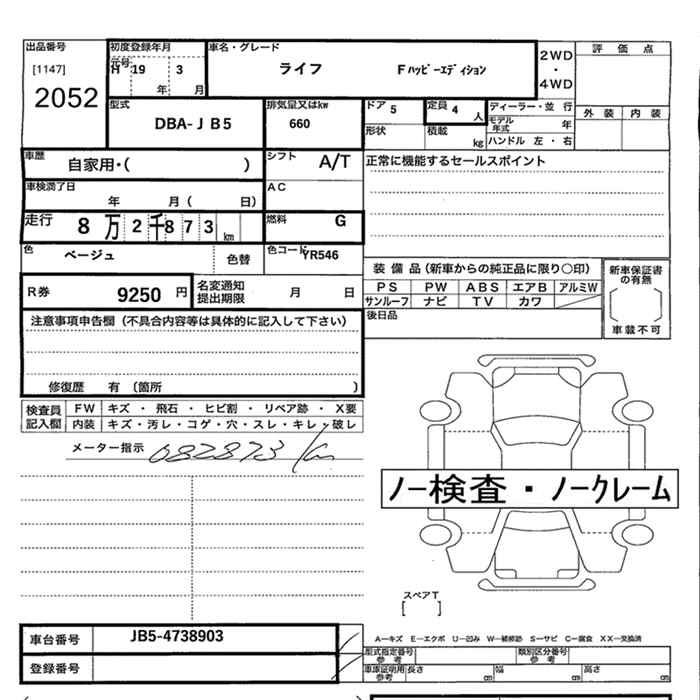 出品番号
[1147]
2052
初度登録年月
元号
H 19 3
年 月
車名・グレード
ライフ Fハッピーエディション
2WD
・
4WD
評 価 点
外 装 内 装
型式
DBA-JB5
排気量又はkw
660
ドア 5
定員 4 人
形状
積載 kg
ディーラー・並 行
モデル年式 年
ハンドル 左 ・ 右
車歴
自家用・( )
シフト A/T
正常に機能するセールスポイント
車検満了日
年 月 ( 日)
AC
走行 8 万 2 千 8 7 3 km
燃料 G
色 ベージュ 色替
色コード YR546
R券 9250 円
名変通知
提出期限 月 日
装 備 品 (新車からの純正品に限り○印)
PS PW ABS エアB アルミW
サンルーフ ナビ TV カワ
新車保証書
の有無
車載不可
後日品
注意事項申告欄(不具合内容等は具体的に記入して下さい)
修復歴 有 (箇所 )
検査員
記入欄
FW キズ ・ 飛石 ・ ヒビ割 ・ リペア跡 ・ X要
内装 キズ・汚レ・コゲ・穴・スレ・キレ・破レ
メーター指示 082873 km
ノー検査・ノークレーム
スペアT
[ ]
車台番号 JB5-4738903
登録番号
A—キズ E—エクボ U—凹み W—補修跡 S—サビ C—腐食 XX—交換済
型式指定番号
参 考
類別区分番号
参 考
車庫証明用
参考
長さ cm 幅 cm 高さ cm